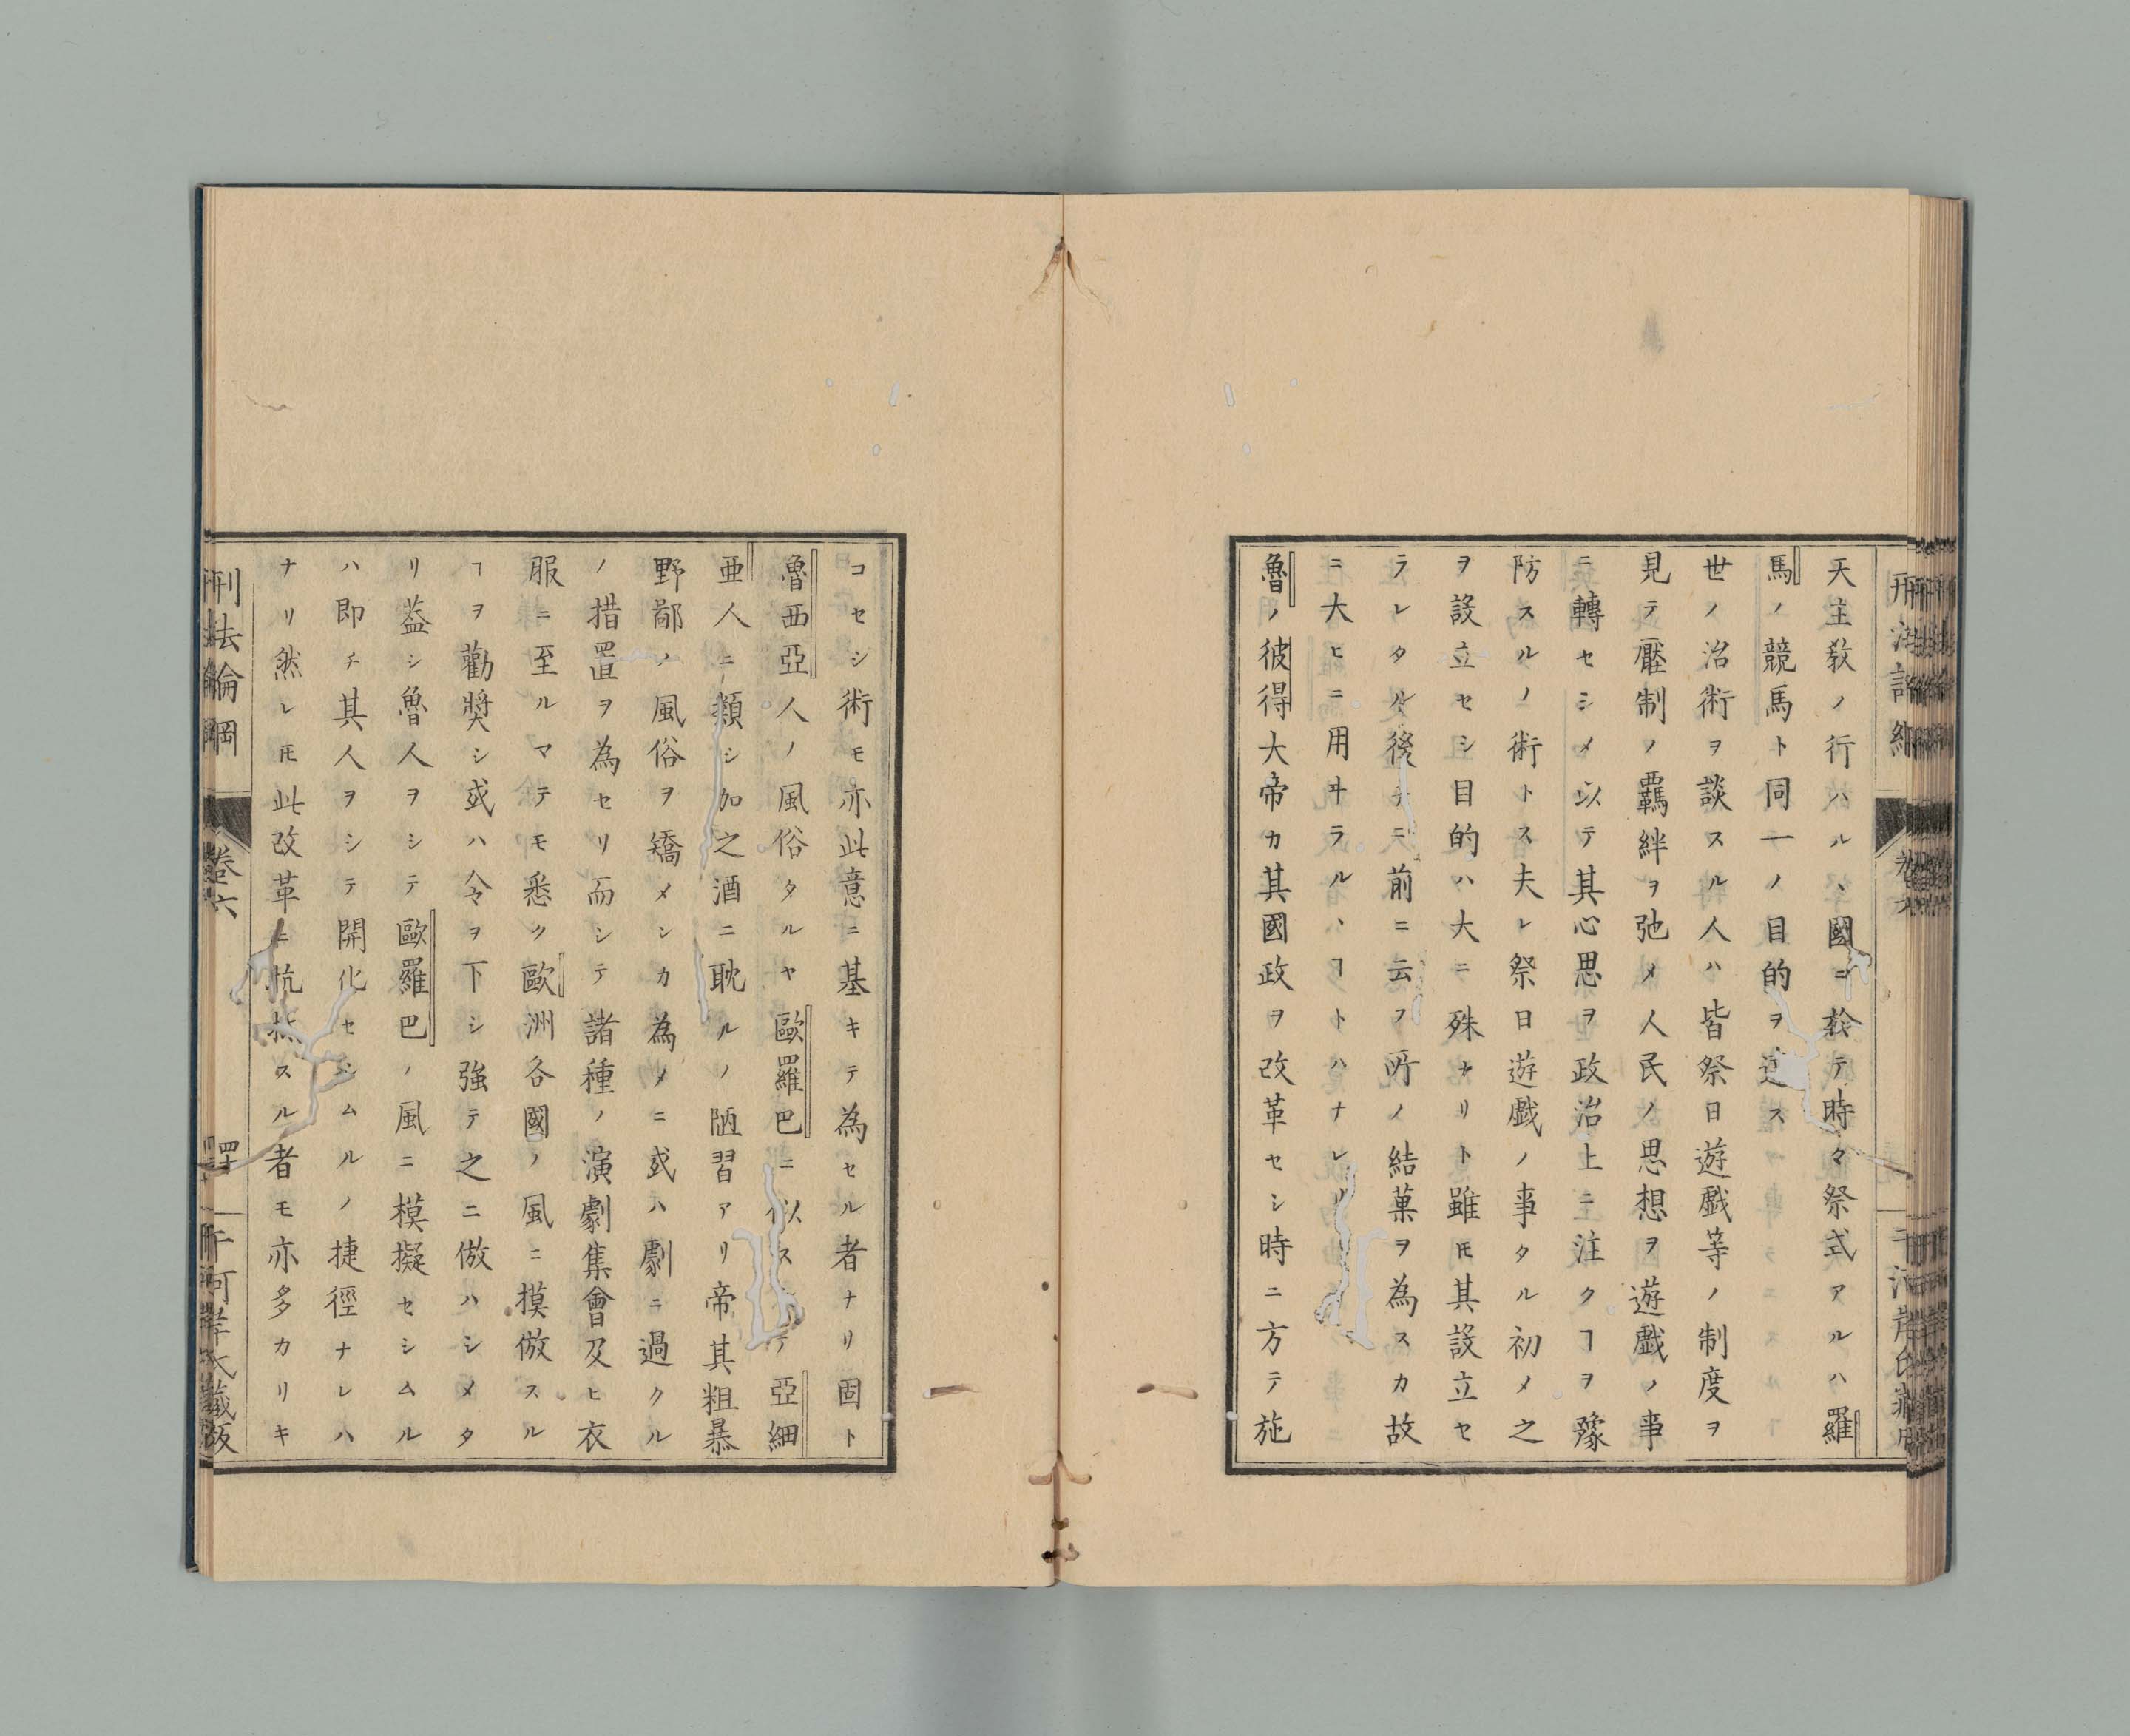 天主敎ノ行ハルヽ國ニ於テ時々祭式アルハ羅
馬ノ競馬ト同一ノ目的ヲ達ス
世ノ治術ヲ談スル人ハ皆祭日遊戯等ノ制度ヲ
見テ壓制ノ羈絆ヲ弛メ人民ノ思想ヲ遊戯ノ事
ニ轉セシメ以テ其心思ヲ政治上ニ注クヿヲ豫
防スルノ術トス夫レ祭日遊戯ノ事タル初メ之
ヲ設立セシ目的ハ大ニ殊ナリト雖𪜈其設立セ
ラレタル後チニ前ニ云フ所ノ結菓ヲ為スカ故
ニ大ヒニ用ヰラルヽヿトハナレリ
魯ノ彼得大帝カ其國政ヲ改革セシ時ニ方テ施
コセシ術モ亦此意ニ基キテ為セル者ナリ固ト
魯西亞人ノ風俗タルヤ歐羅巴ニ似スシテ亞細
亜人ニ類シ加之酒ニ耽ルノ陋習アリ帝其粗暴
野鄙ノ風俗ヲ矯メンカ為メニ或ハ劇ニ過クル
ノ措置ヲ為セリ而シテ諸種ノ演劇集會及ヒ衣
服ニ至ルマテモ悉ク歐洲各國ノ風ニ摸倣スル
ヿヲ勸奬シ或ハ令ヲ下シ強テ之ニ倣ハシメタ
リ葢シ魯人ヲシテ歐羅巴ノ風ニ模擬セシムル
ハ即チ其人ヲシテ開化セシムルノ捷徑ナレハ
ナリ然レ𪜈此改革ニ抗抵スル者モ亦多カリキ
刑法論綱
卷六
河岸氏藏版